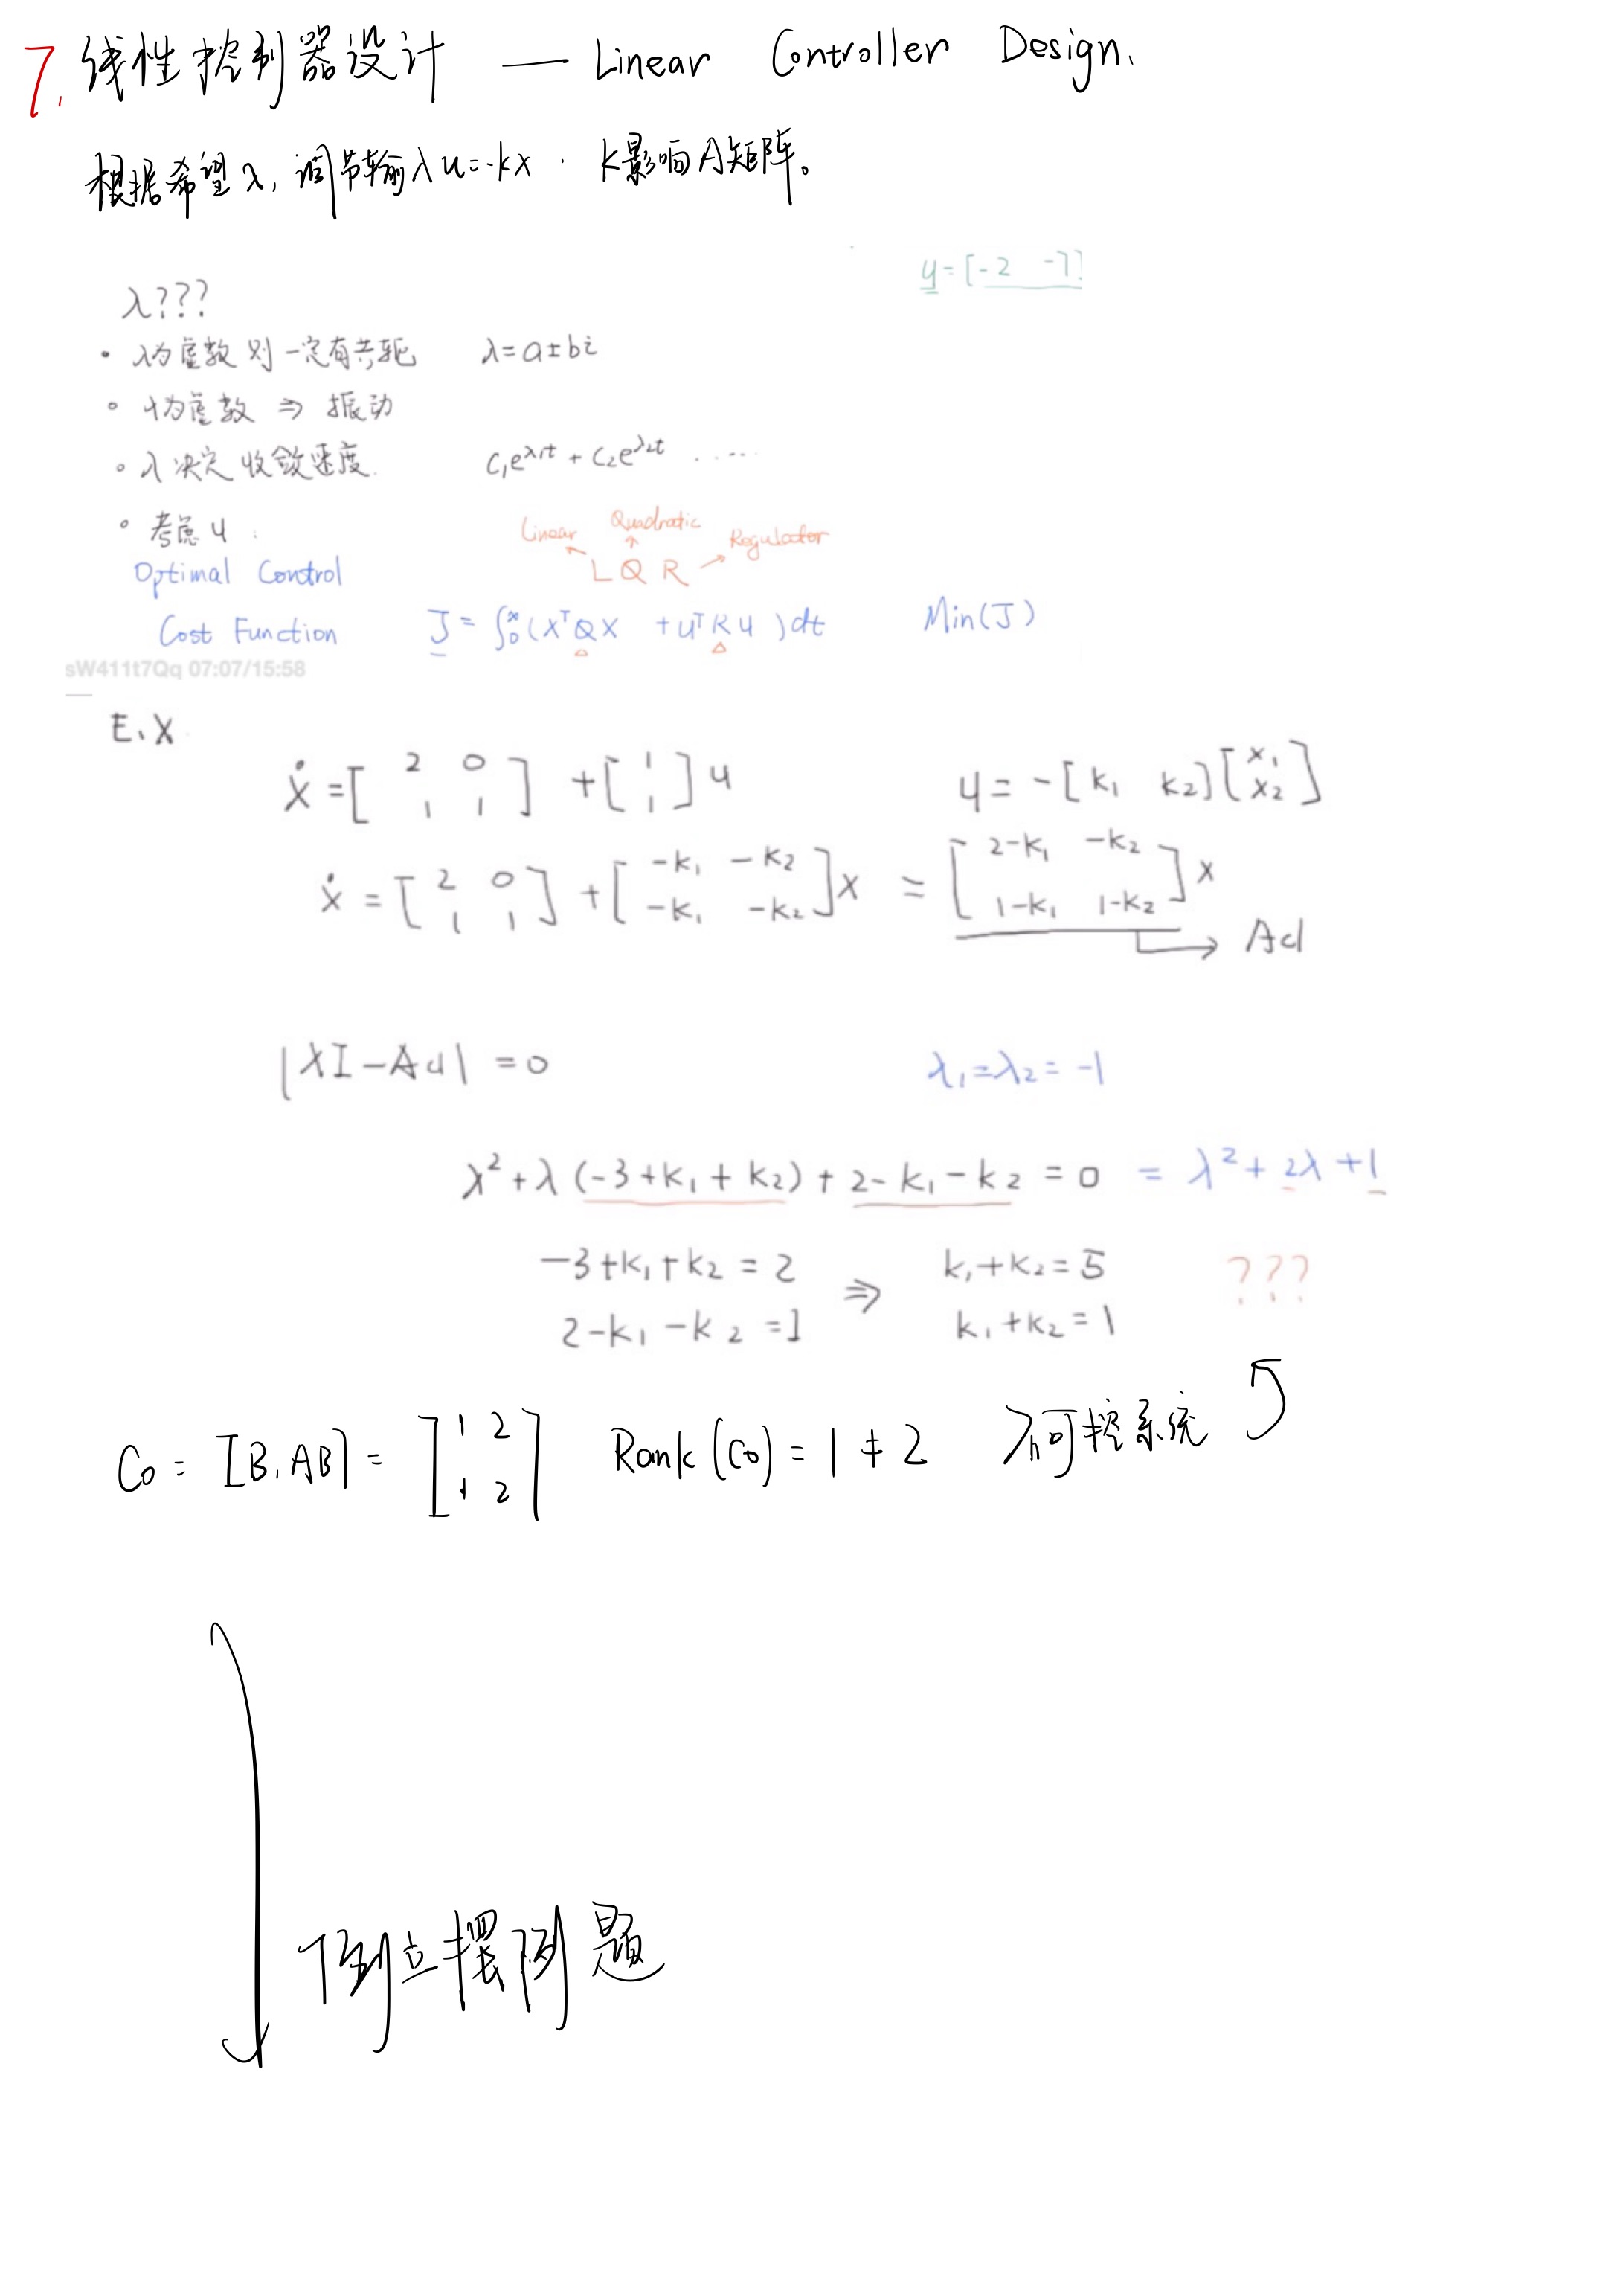 7. 线性控制器设计 — Linear Controller Design.
根据希望λ, 调节输入u=-kx. K影响A矩阵。
u=[-2 -7]
λ???
• λ为虚数 则一定有共轭 λ=a±bi
• λ为虚数 ⇒ 振动
• λ决定收敛速度. C₁e^λ₁t + C₂e^λ₂t .....
• 考虑 u.
Linear Quadratic Regulator
L Q R
Optimal Control
Cost Function J = ∫₀^∞ (xᵀQx + uᵀRu) dt Min(J)
sW411t7Qq 07:07/15:58
E.X.
ẋ = [2 0; 1 1] + [1; 1] u u = -[k₁ k₂][x₁; x₂]
ẋ = [2 0; 1 1] + [-k₁ -k₂; -k₁ -k₂] x = [2-k₁ -k₂; 1-k₁ 1-k₂] x
→ Acl
|λI - Acl| = 0 λ₁=λ₂=-1
λ² + λ(-3+k₁+k₂) + 2-k₁-k₂ = 0 = λ²+2λ+1
-3+k₁+k₂ = 2 ⇒ k₁+k₂=5 ???
2-k₁-k₂ = 1 k₁+k₂=1
Co = [B, AB] = [1 2; 1 2] Rank(Co) = 1 ≠ 2 不可控系统
倒立摆例题